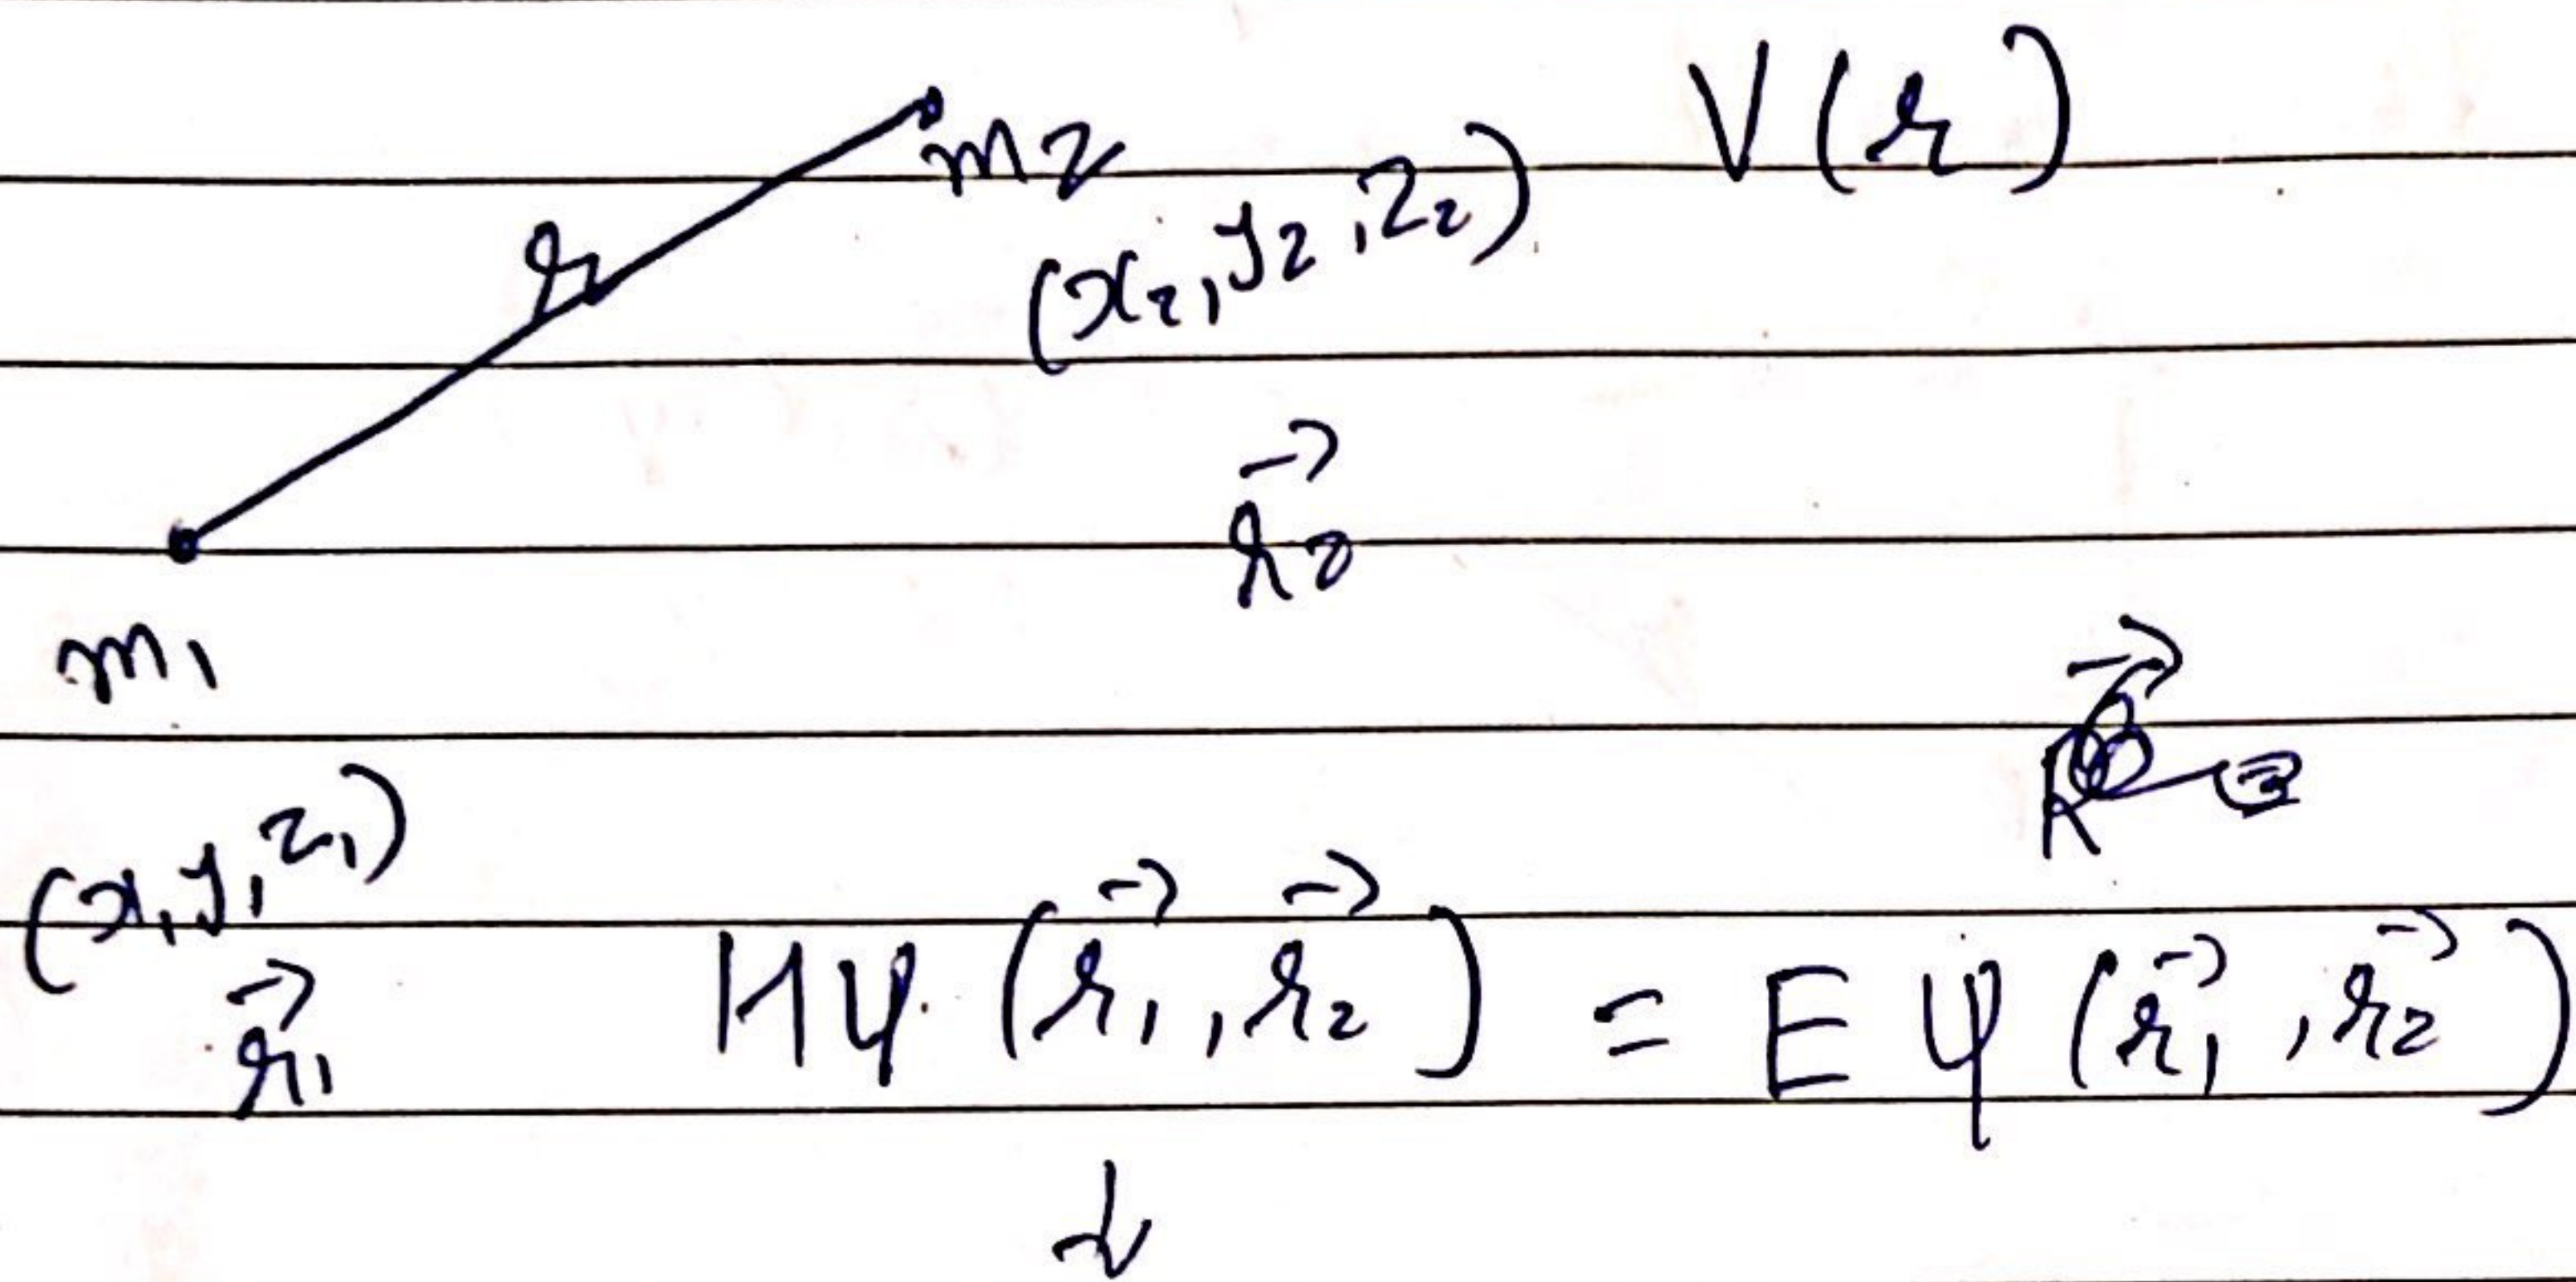 m2 V(r)
r (x₂, y₂, z₂)
r⃗₂
m₁
(x₁, y₁, z₁)
r⃗₁ Hψ(r⃗₁, r⃗₂) = Eψ(r⃗₁, r⃗₂)